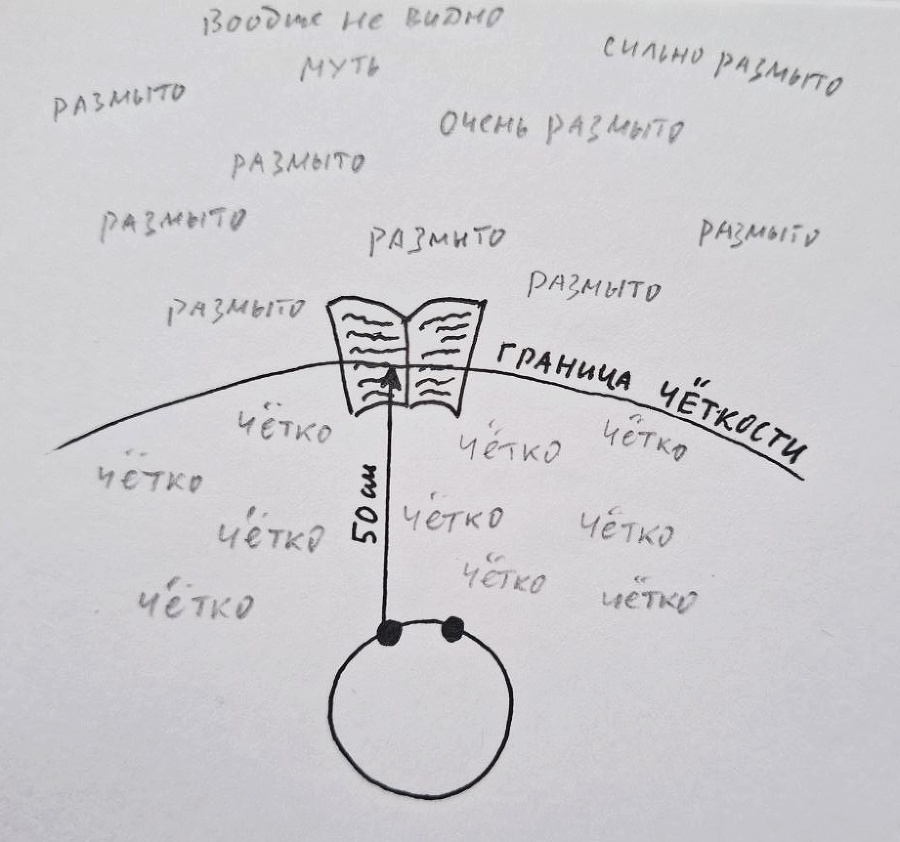 Вообще не видно
сильно размыто
муть
размыто
очень размыто
размыто
размыто
размыто
размыто
размыто
размыто
граница чёткости
чётко
чётко
чётко
чётко
50 см
чётко
чётко
чётко
чётко
чётко
чётко